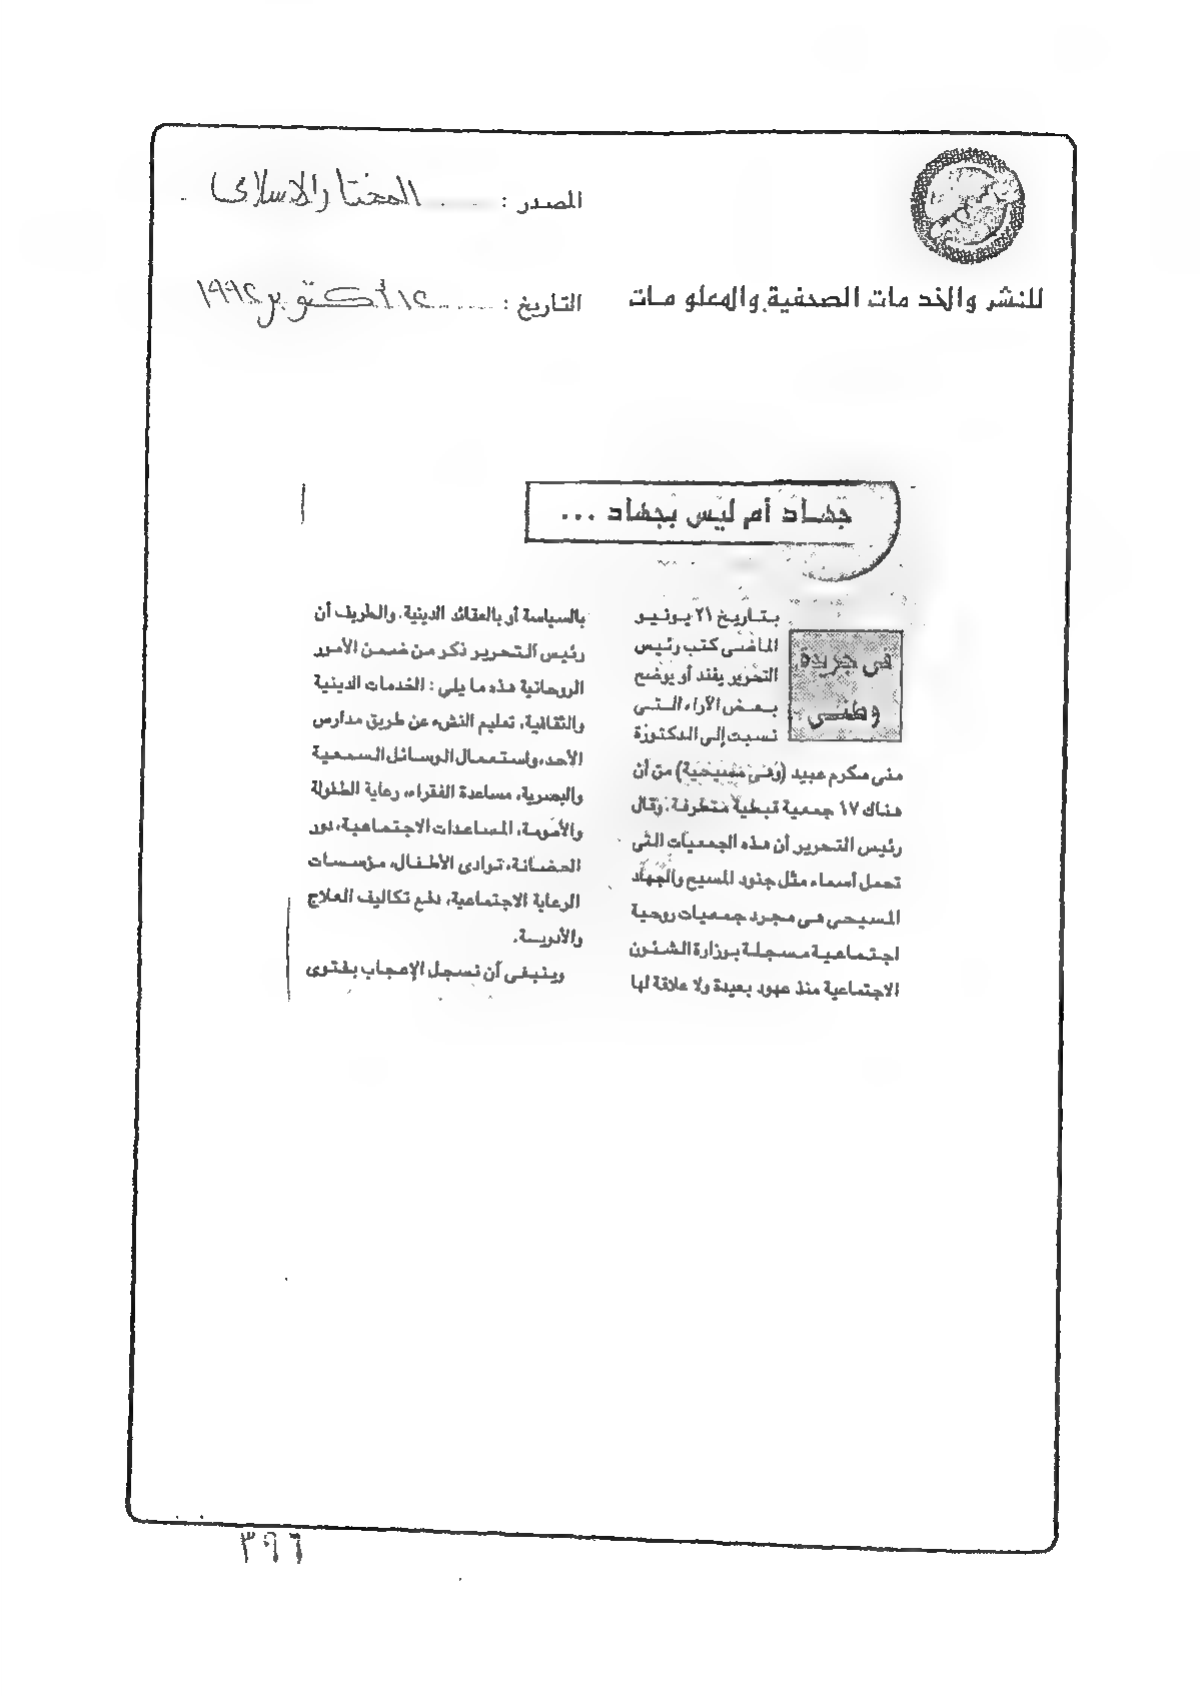 المصدر : المختار الاسلامى
للنشر والخدمات الصحفية والمعلومات
التاريخ : ١٢ أكتوبر ١٩٩٢
جهاد أم ليس بجهاد ...
فى جريدة
وطنى
بتاريخ ٢١ يونيو
الماضى كتب رئيس
التحرير يفند أو يوضح
بعض الآراء التى
نسبت إلى الدكتورة
منى مكرم عبيد (وهى مسيحية) من أن
هناك ١٧ جمعية قبطية متطرفة. وقال
رئيس التحرير أن هذه الجمعيات التى
تحمل أسماء مثل جنود المسيح والجهاد
المسيحى هى مجرد جمعيات روحية
اجتماعية مسجلة بوزارة الشئون
الاجتماعية منذ عهود بعيدة ولا علاقة لها
بالسياسة أو بالعقائد الدينية. والطريف أن
رئيس التحرير ذكر من ضمن الأمور
الروحانية هذه ما يلى : الخدمات الدينية
والثقافية، تعليم النشء عن طريق مدارس
الأحد، واستعمال الوسائل السمعية
والبصرية، مساعدة الفقراء، رعاية الطفولة
والأمومة، المساعدات الاجتماعية، دور
الحضانة، نوادى الأطفال، مؤسسات
الرعاية الاجتماعية، دفع تكاليف العلاج
والأدوية.
وينبغى أن نسجل الإعجاب بفتوى
٣٩٦